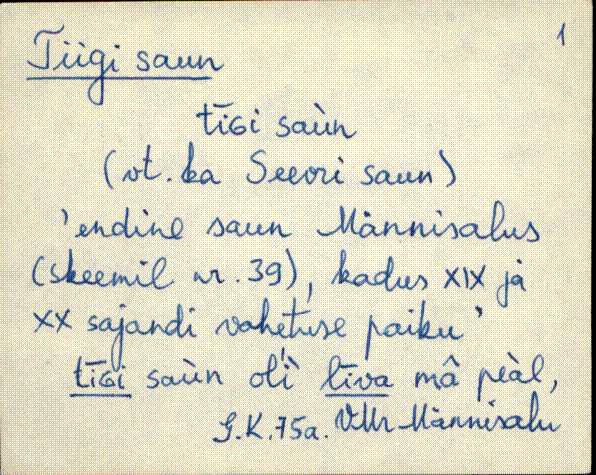 1
Tiigi saun
tīɢi saùn
(vt. ka Seeori saun)
'endine saun Männisalus
(skeemil nr. 39), kadus XIX ja
XX sajandi vahetuse paiku'
tīɢi saùn oĺì līva mâ pèàl,
G.K. 75a. VMr Männisalu